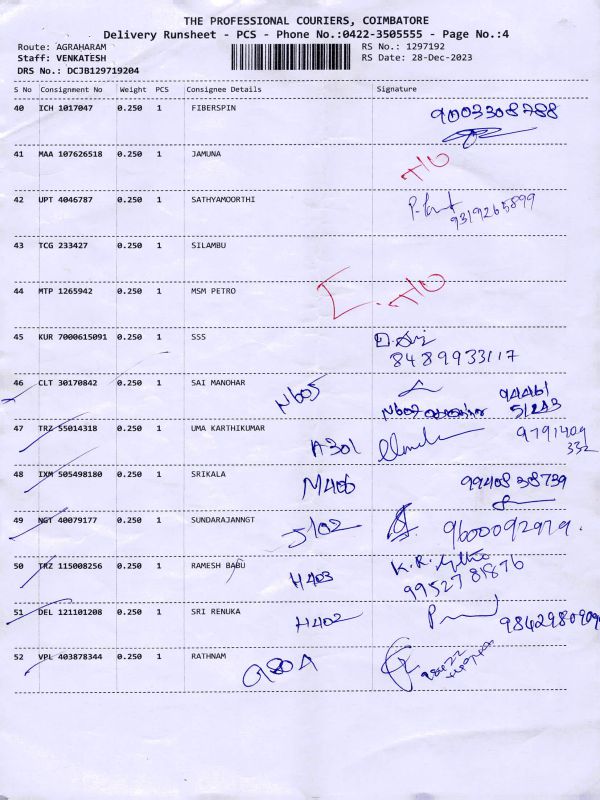 THE PROFESSIONAL COURIERS, COIMBATORE
Delivery Runsheet - PCS - Phone No.:0422-3505555 - Page No.:4
Route: AGRAHARAM RS No.: 1297192
Staff: VENKATESH RS Date: 28-Dec-2023
DRS No.: DCJB129719204
S No Consignment No Weight PCS Consignee Details Signature
40 ICH 1017047 0.250 1 FIBERSPIN 9003308788
41 MAA 107626518 0.250 1 JAMUNA
42 UPT 4046787 0.250 1 SATHYAMOORTHI
9319265899
43 TCG 233427 0.250 1 SILAMBU
44 MTP 1265942 0.250 1 MSM PETRO
45 KUR 7000615091 0.250 1 SSS
8489933117
46 CLT 30170842 0.250 1 SAI MANOHAR N605 94461
51243
47 TRZ 55014318 0.250 1 UMA KARTHIKUMAR A301 9791409
332
48 IXM 505498180 0.250 1 SRIKALA M406 9940838739
49 NGT 40079177 0.250 1 SUNDARAJANNGT J102 9600092979.
50 TRZ 115008256 0.250 1 RAMESH BABU H403 K.R.
9952781876
51 DEL 121101208 0.250 1 SRI RENUKA H402 9842980909
52 VPL 403878344 0.250 1 RATHNAM G80A